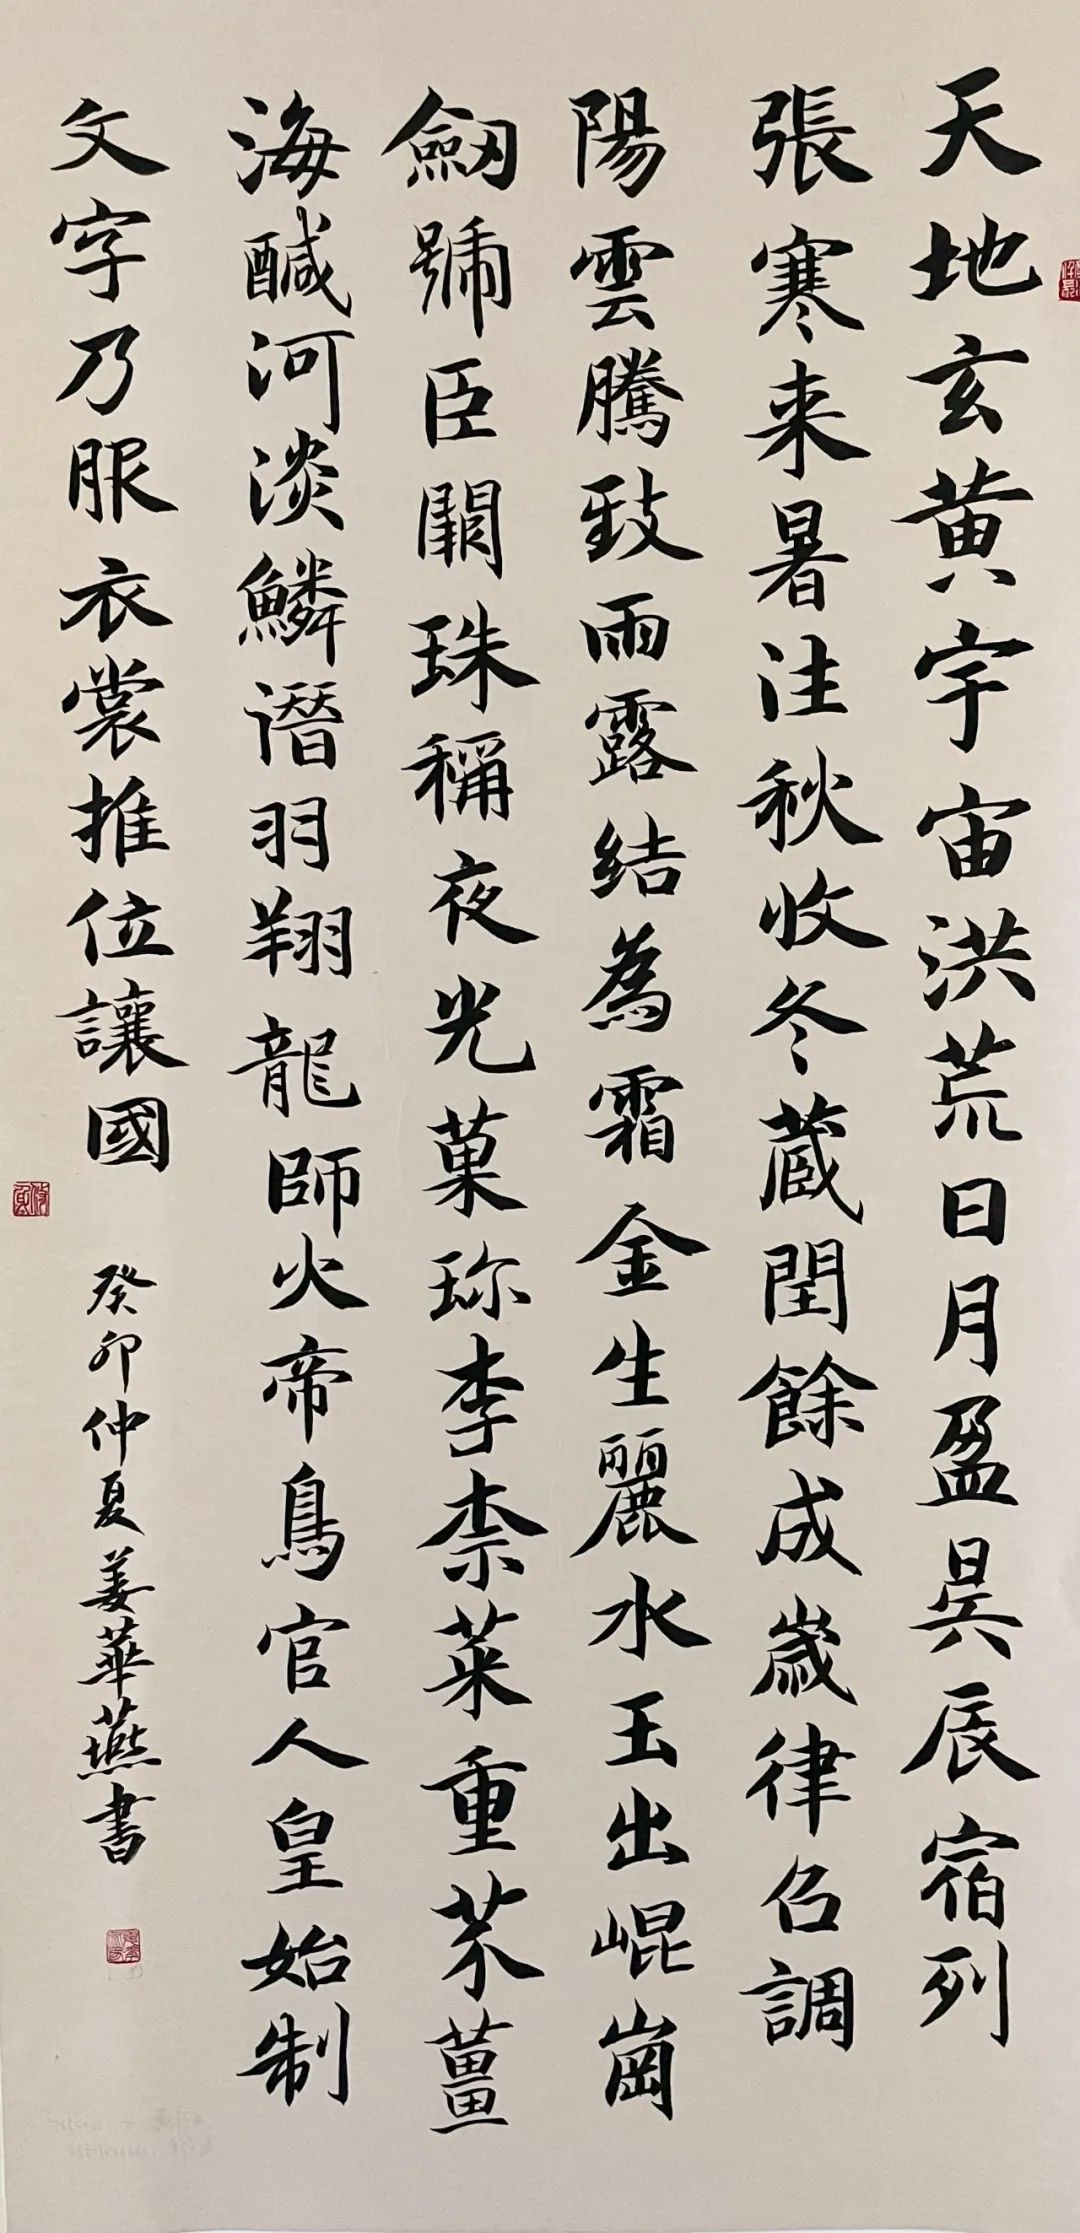 天地玄黄宇宙洪荒日月盈昃辰宿列
張寒来暑往秋收冬蔵閏餘成歲律召調
陽雲騰致雨露結為霜金生麗水玉出崐崗
劒號臣闕珠稱夜光菓珎李柰菜重芥薑
海醎河淡鱗潛羽翔龍師火帝鳥官人皇始制
文字乃服衣裳推位讓國
癸卯仲夏姜華燕書